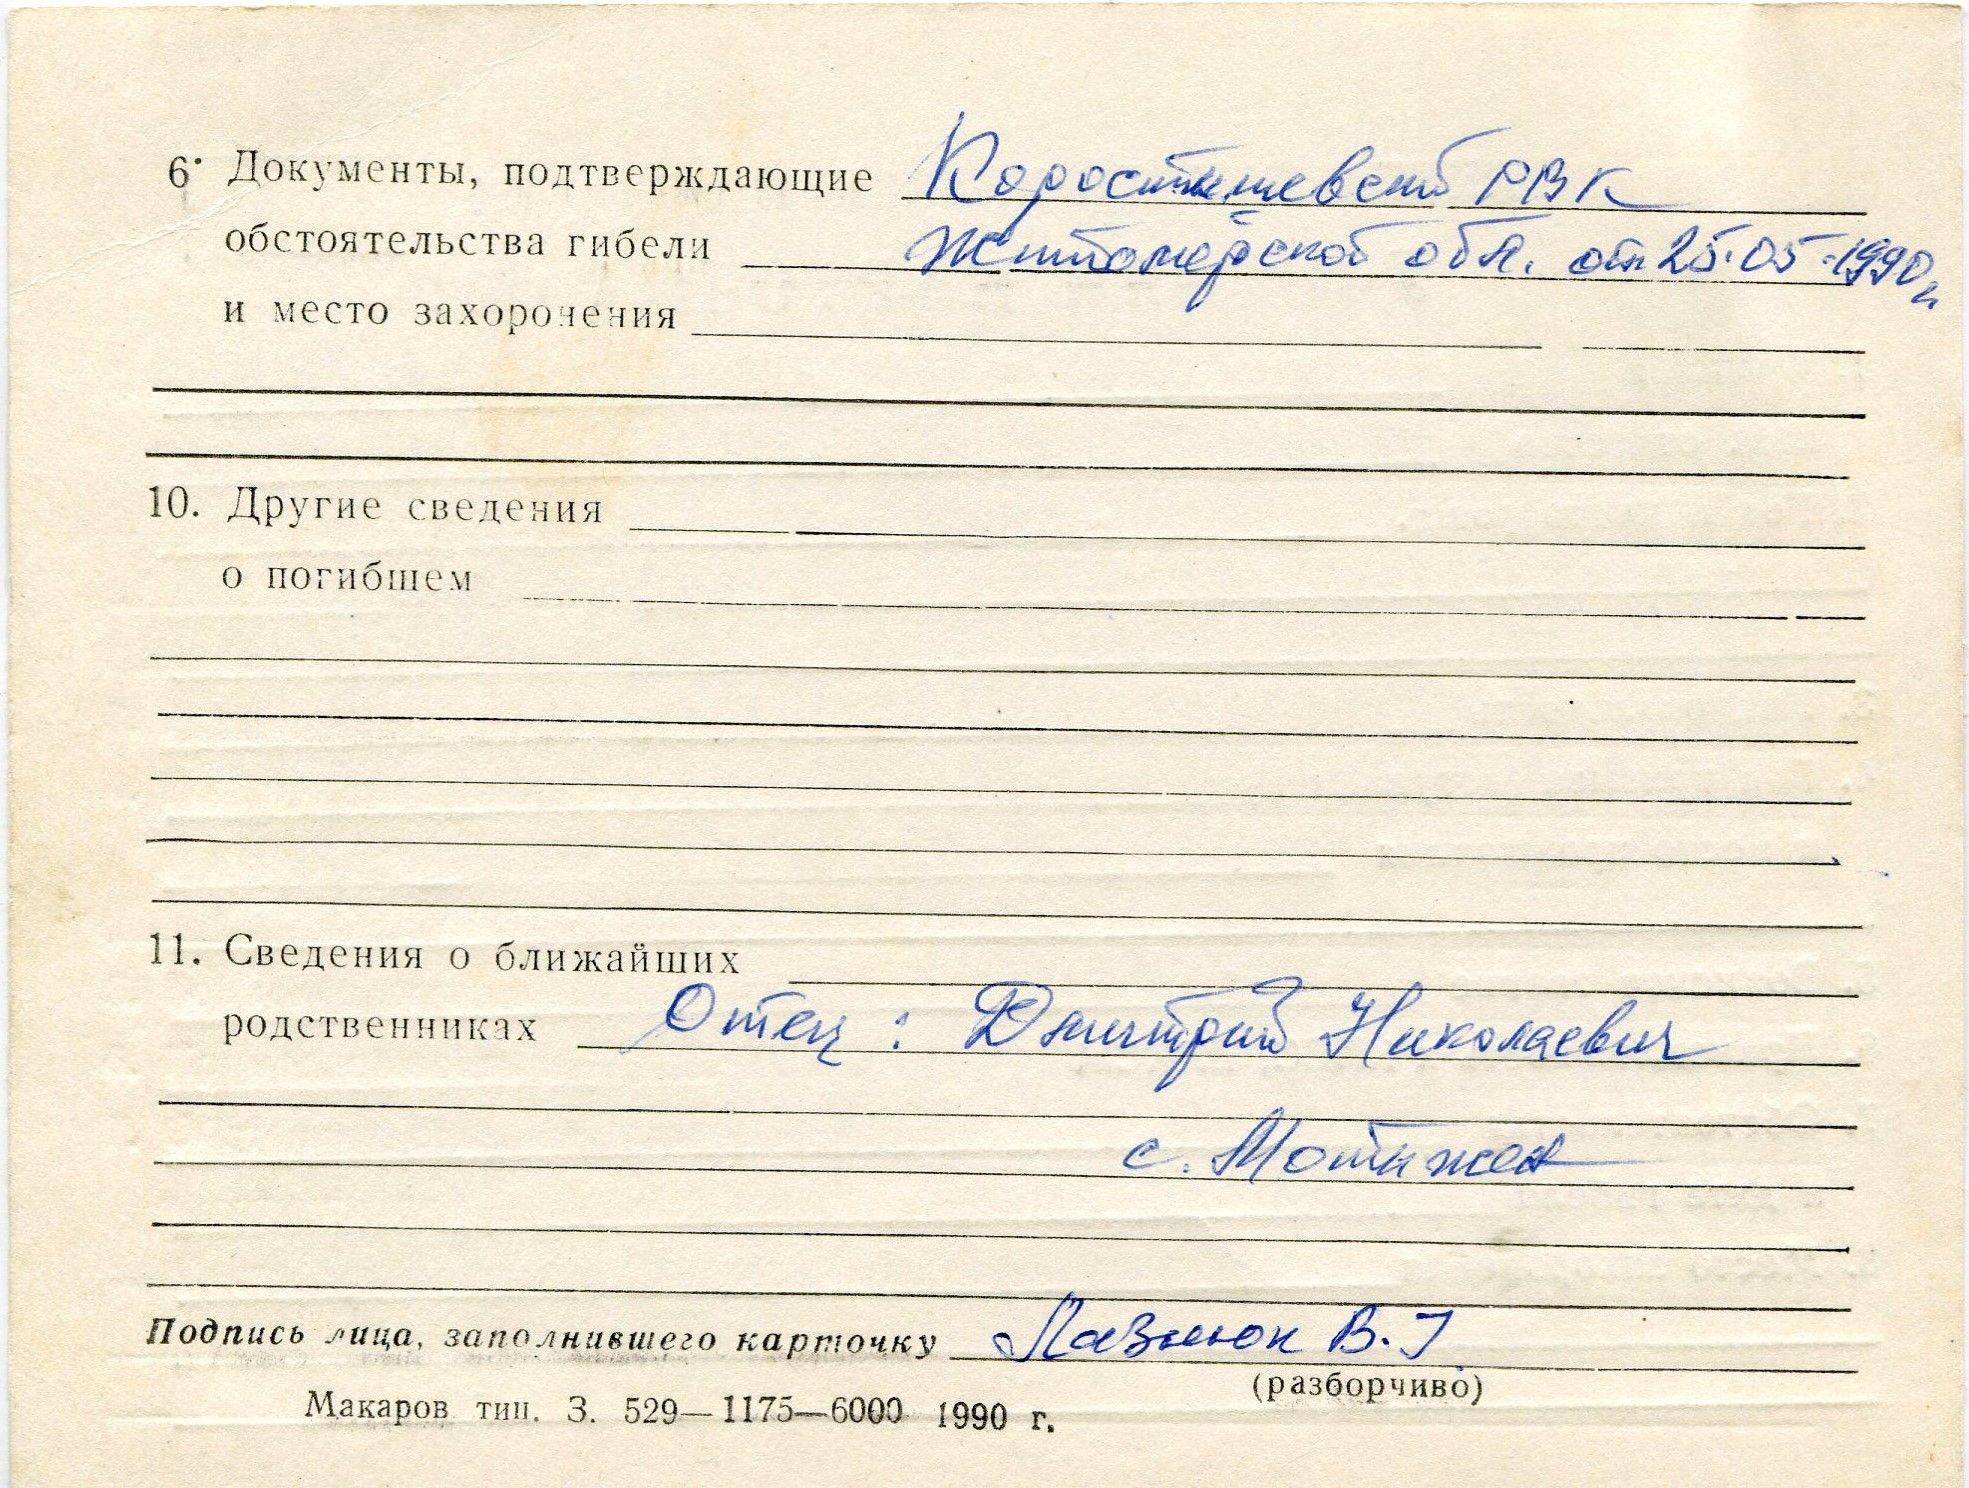 6. Документы, подтверждающие Коростышевский РВК
обстоятельства гибели Житомирской обл. от 25.05.1990г
и место захоронения
10. Другие сведения
о погибшем
11. Сведения о ближайших
родственниках Отец: Дмитрий Николаевич
с. Мотыжен
Подпись лица, заполнившего карточку Лазнюк В.Г
(разборчиво)
Макаров тип. З. 529—1175—6000 1990 г.